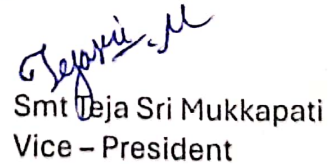 Tejasri. M
Smt Teja Sri Mukkapati
Vice – President